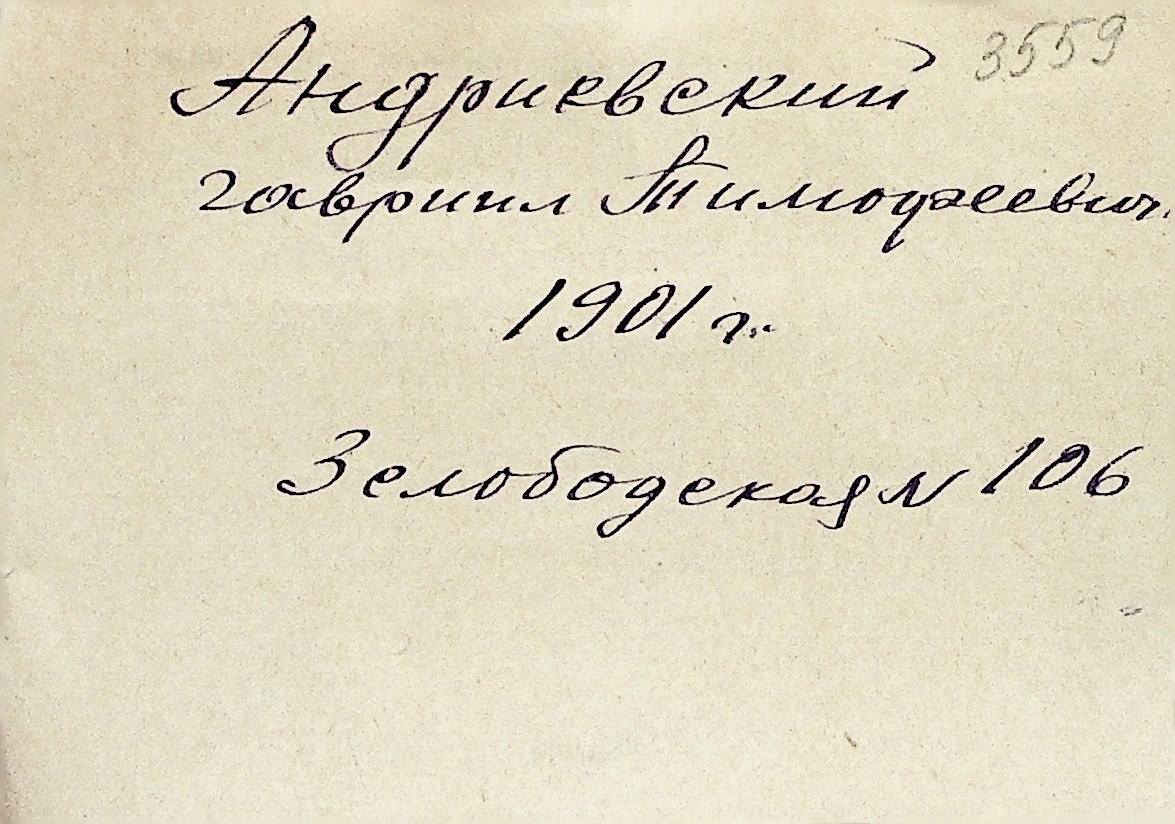 3559
Андриевский
Гавриил Тимофеевич.
1901 г.
3 слободская N 106